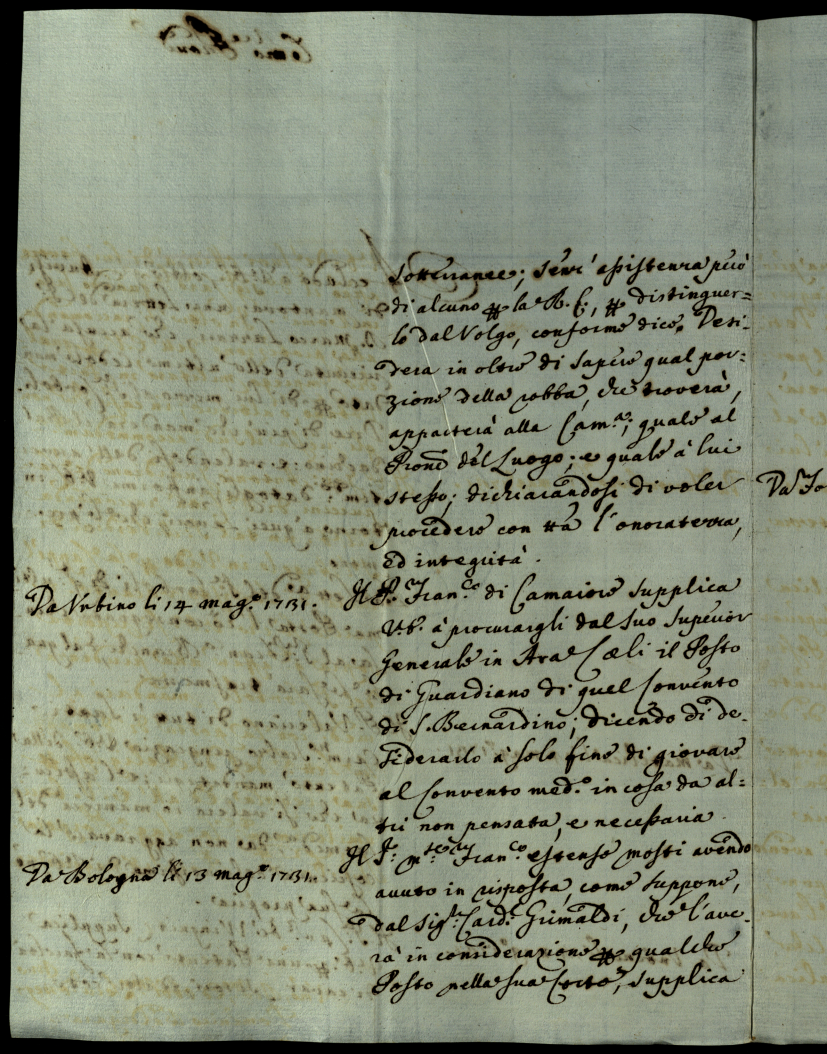 sotterranee; senz' assistenza però
di alcuno p la R. C., p distinguer=
lo dal Volgo, conforme dice. Desi-
dera in oltre di sapere qual por=
zione della robba, che troverà,
apparterà alla Cam.ª; quale al
Prone del Luogo; e quale à lui
stesso; dichiarandosi di voler
procedere con ttà l'onoratezza,
ed integrità.
Da Urbino li 14 mag.º 1731.
Il P. Fran.co di Camaiore supplica
V.S. à procurargli dal suo Superior
Generale in Ara Cœli il Posto
di Guardiano di quel Convento
di S. Bernardino; dicendo di de-
siderarlo à solo fine di giovare
al Convento med.º in cosa da al=
tri non pensata, e necessaria.
Da Bologna li 13 mag.º 1731.
Il P. Fran.co estense mosti avendo
avuto in risposta, come suppone,
dal Sig.r Card. Grimaldi, che l'ave-
rà in considerazione p qualche
Posto nella sua Corte, supplica
Da Fo